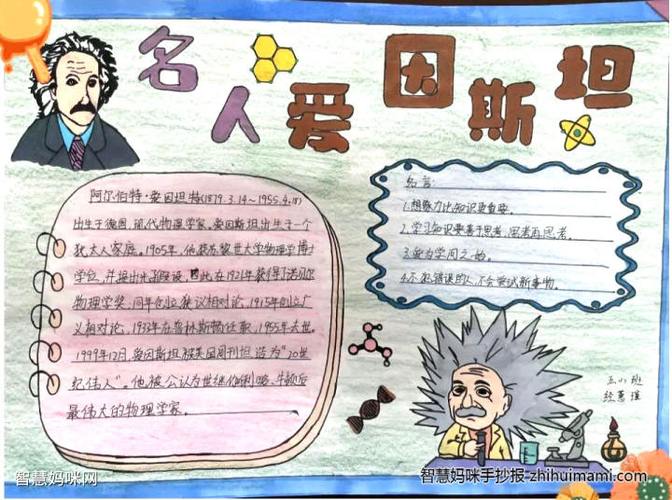 名人爱因斯坦
阿尔伯特·爱因坦特(1879.3.14~1955.4.18)
出生于德国,现代物理学家。爱因斯坦出生于一个
犹太人家庭。1905年,他获苏黎世大学物理学博士
学位,并提出光子假设,因此在1921年获得了诺贝尔
物理学奖,同年创立狭义相对论,1915年创立广
义相对论,1933年在普林斯顿任职,1955年去世。
1999年12月,爱因斯坦被美国周刊坦选为“20世
纪伟人”。他被公认为世继伽利略、牛顿后
最伟大的物理学家。
名言:
1.想象力比知识更重要。
2.学习知识要善于思考,思考再思考。
3.疑为学问之始。
4.不犯错误的人,不会尝试新事物。
五(1)班
智慧妈咪网
智慧妈咪手抄报-zhihuimami.com